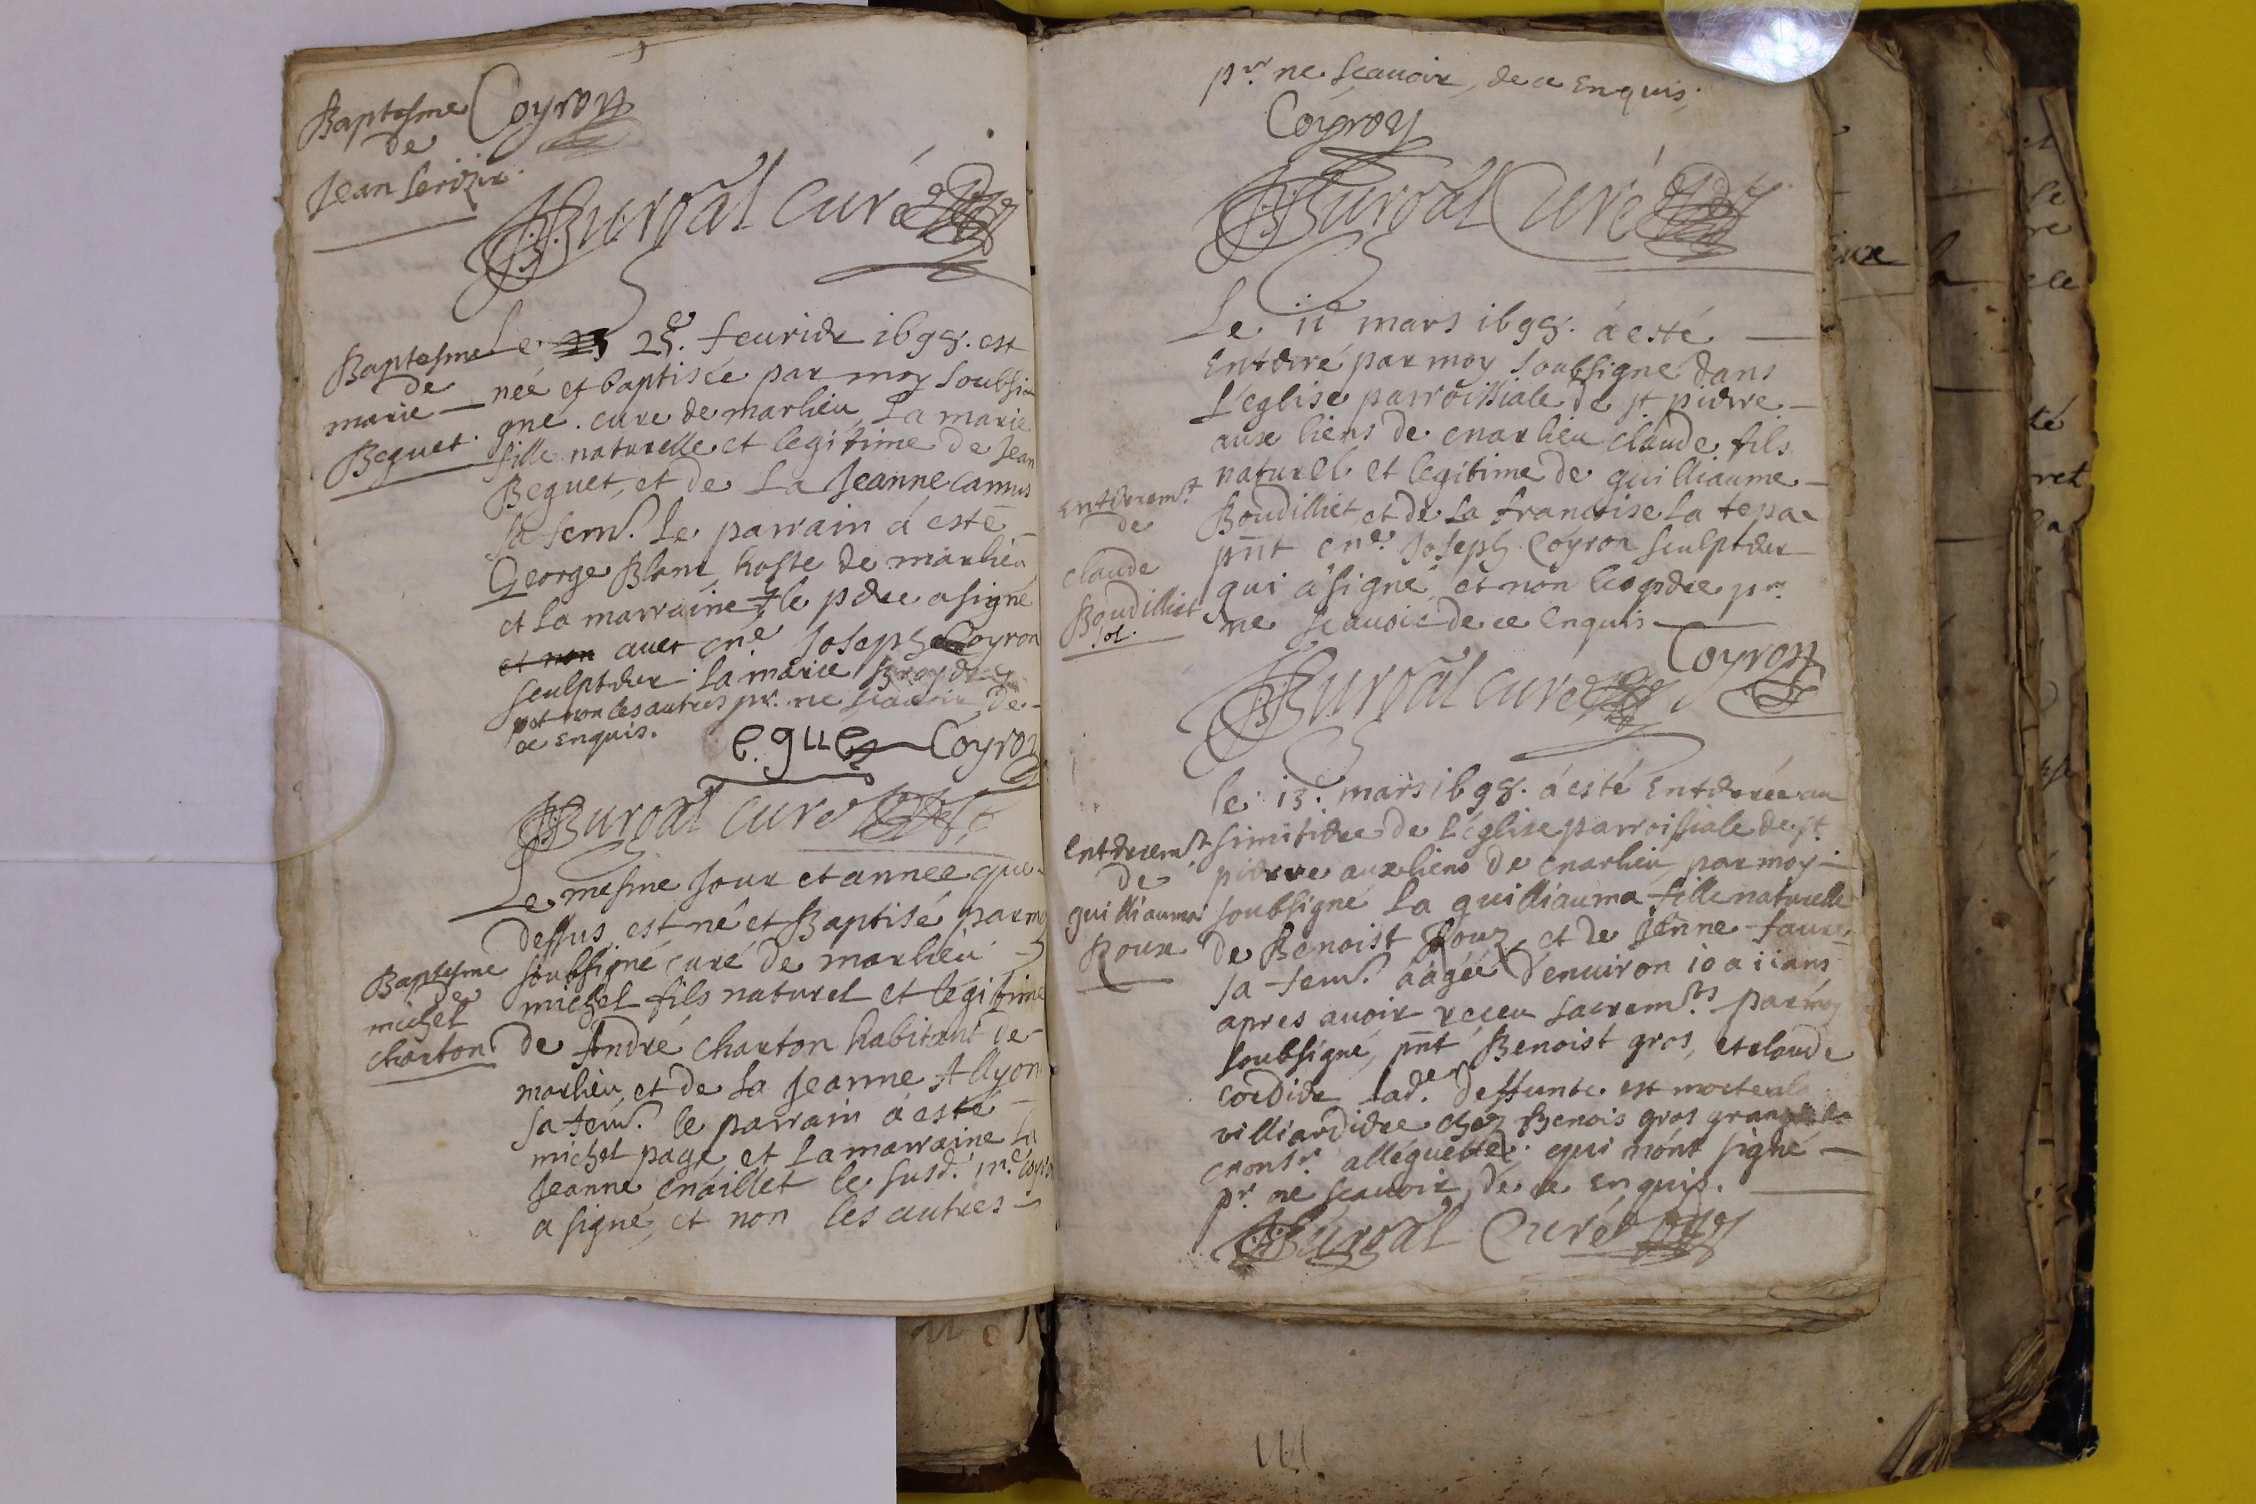 Baptesme
de
Jean Lerizie
Coyron
Burdal curé
Baptesme
de
marie
Beguet
Le 25 25e feurier 1698. est
née et baptisée par moy soubsi
gne cure de marlieu La marie
fille naturelle et legitime de Jean
Beguet, et de La Jeanne camus
sa fem. Le parrain á esté
George Blanc hoste de marlieu
et La marraine le pere a signé
et non auec me Joseph Coyron
sculpteur la marie
et non les autres pr. ne scauoir de
ce enquis.
eguet Coyron
Burdal curé
Le mesme Jour et annee que
dessus est né et Baptisé par moy
soubsigné curé de marlieu
michel fils naturel et legitime
Baptesme
de
michel
charton
de André charton habitant de
marlieu, et de La Jeanne Allyon
sa fem. le parrain á esté
michel page et La marraine La
Jeanne maillet le susd. me coyron
a signé, et non les autres
pr. ne scauoir, de ce enquis.
Coyron
Burdal Curé
Le 11e mars 1698. á esté
Enterré par moy soubsigné dans
L'eglise parroissiale de st pierre
aux liens de marlieu claude fils
naturel et legitime de guilliaume
Boudilliet, et de La francoise La
pnt me. Joseph Coyron sculpteur
qui á signé, et non le pere pr
ne scauoir de ce enquis
Enterremt
de
claude
Boudilliet
Coyron
Burdal curé
le 13. mars 1698. á esté Enterrée au
simitiere de L'église parroissiale de st
pierre aux liens de marlieu par moy
soubsigné La guilliauma fille naturelle
de Benoist Roux et de Jenne faure
sa fem. áagée d'enuiron 10 a 11 ans
apres auoir receu sacremts par moy
soubsigné, pnt Benoist gros, et claude
cordier lade. deffunte est morte
villiardiere chez Benois gros
alléguette qui n'ónt signé
pr ne scauoir, de ce enquis.
Enterremt
de
guilliauma
Roux
Burdal Curé